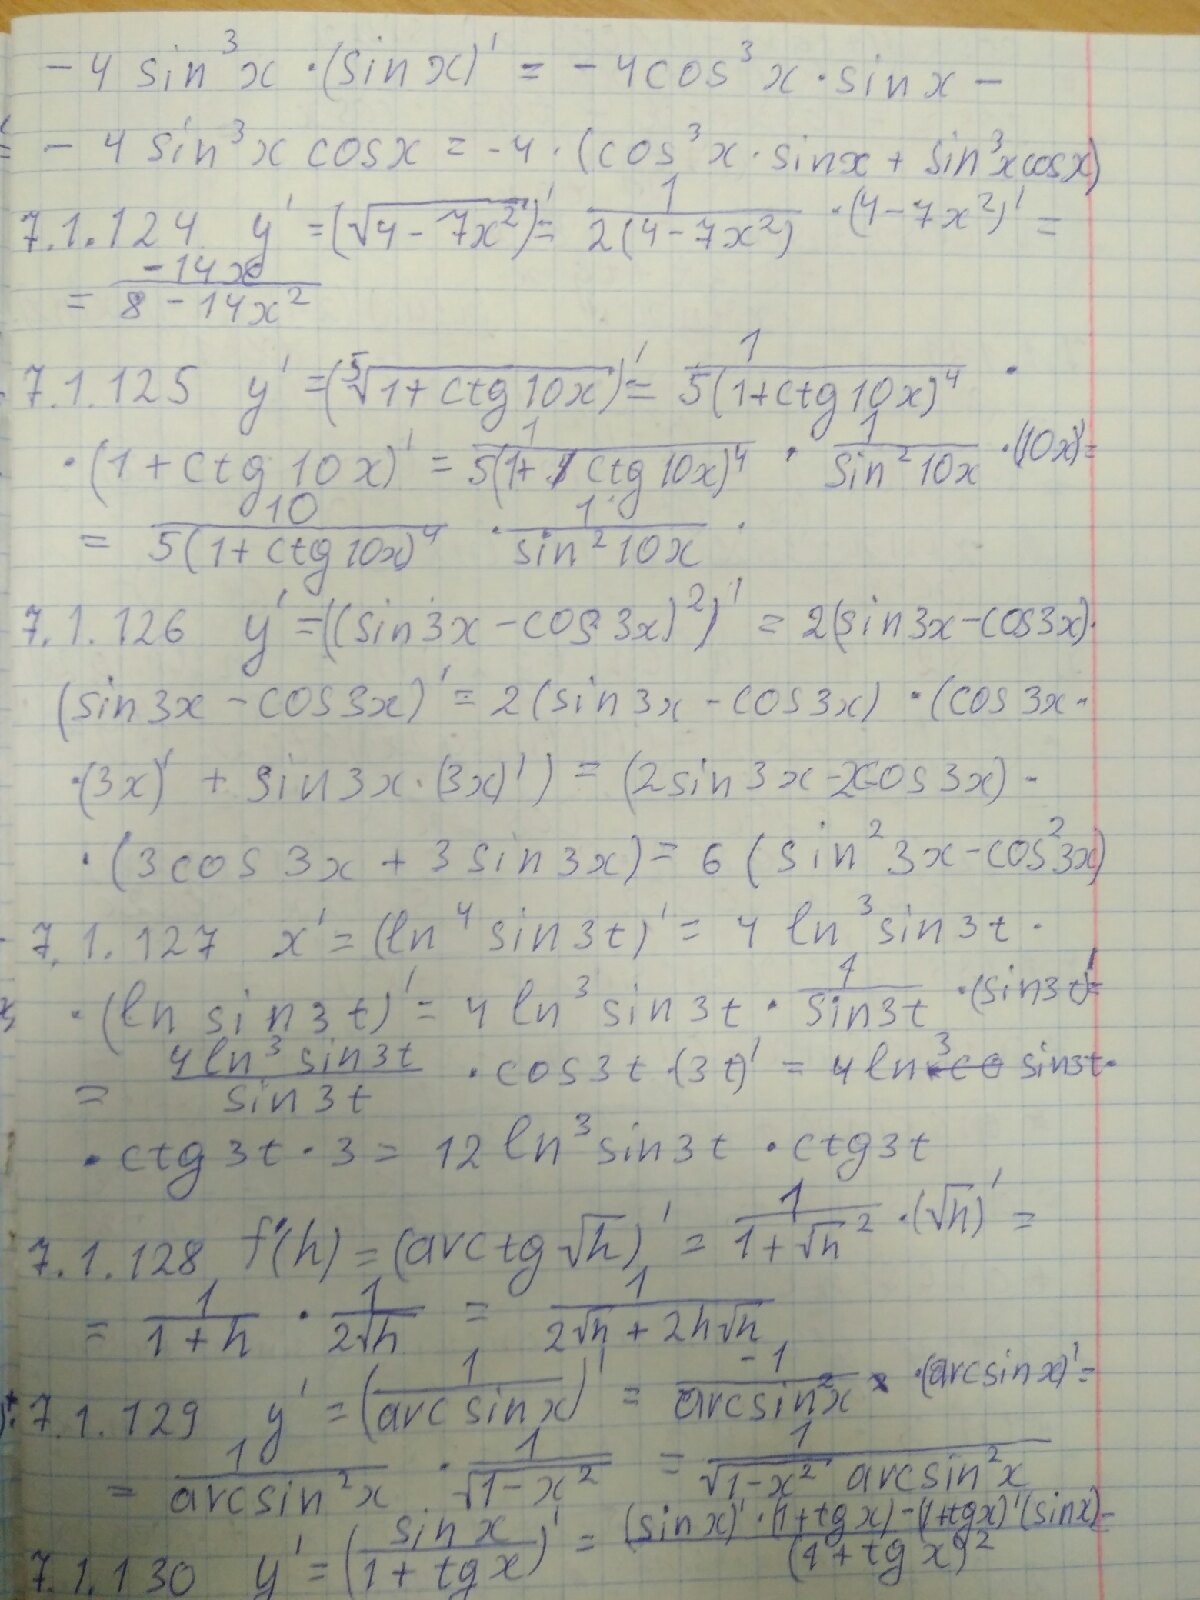 -4 sin³x · (sin x)' = -4cos³x · sin x -
- 4 sin³x cosx = -4 · (cos³x · sinx + sin³x cosx)
7.1.124 y' = (√(4-7x²))' = 1/(2(4-7x²)) · (4-7x²)' =
= -14x/(8-14x²)
7.1.125 y' = (⁵√(1+ctg10x))' = 1/(5(1+ctg10x)⁴) ·
· (1+ctg10x)' = 1/(5(1+ctg10x)⁴) · 1/(sin²10x) · (10x)' =
= 10/(5(1+ctg10x)⁴) · 1/(sin²10x) .
7.1.126 y' = ((sin3x-cos3x)²)' = 2(sin3x-cos3x)·
(sin3x-cos3x)' = 2(sin3x-cos3x) · (cos3x ·
· (3x)' + sin3x · (3x)') = (2sin3x-2cos3x) ·
· (3cos3x + 3sin3x) = 6 (sin²3x-cos²3x)
7.1.127 x' = (ln⁴sin3t)' = 4 ln³sin3t ·
· (ln sin3t)' = 4 ln³sin3t · 1/(sin3t) · (sin3t)' =
= (4ln³sin3t)/(sin3t) · cos3t · (3t)' = 4ln³ sin3t ·
· ctg3t · 3 = 12 ln³sin3t · ctg3t
7.1.128 f'(h) = (arctg√h)' = 1/(1+√h²) · (√h)' =
= 1/(1+h) · 1/(2√h) = 1/(2√h+2h√h)
7.1.129 y' = (1/(arcsinx))' = -1/(arcsin²x) · (arcsinx)' =
= 1/(arcsin²x) · 1/√(1-x²) = 1/(√(1-x²) arcsin²x)
7.1.130 y' = (sin x/(1+tgx))' = ((sinx)' · (1+tgx) - (1+tgx)'(sinx))/(1+tgx)² =